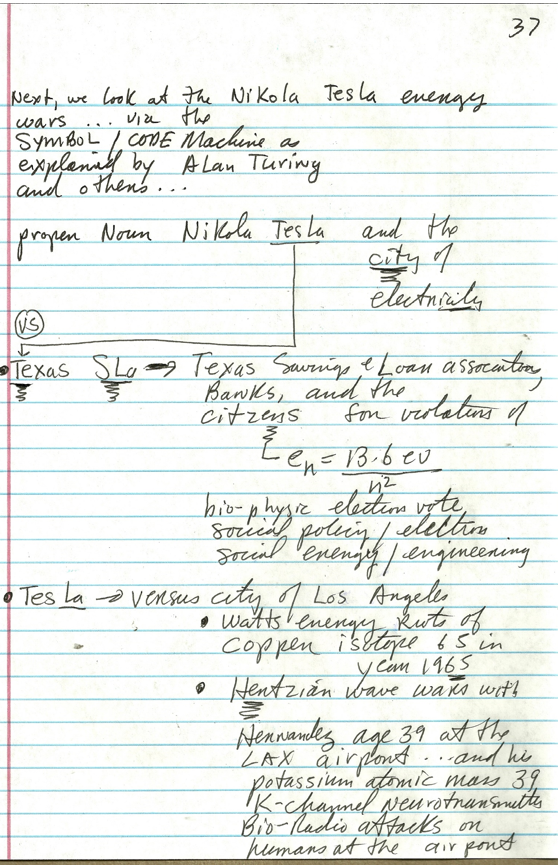 37
Next, we look at the Nikola Tesla energy
wars ... via the
SYMBOL / CODE Machine as
explained by Alan Turing
and others ...
proper Noun Nikola Tesla and the
city of
electricity
VS
Texas SLa → Texas Savings & Loan association,
Banks, and the
citizens for violation of
en = 13.6 ev
n²
bio-physic election vote
social policy / electron
social energy / engineering
Tesla → versus city of Los Angeles
• Watts energy Riots of
Copper isotope 65 in
year 1965
• Hertzian wave wars with
Hernandez age 39 at the
LAX airport ... and his
potassium atomic mass 39
K-channel Neurotransmitter
Bio-Radio attacks on
humans at the airport